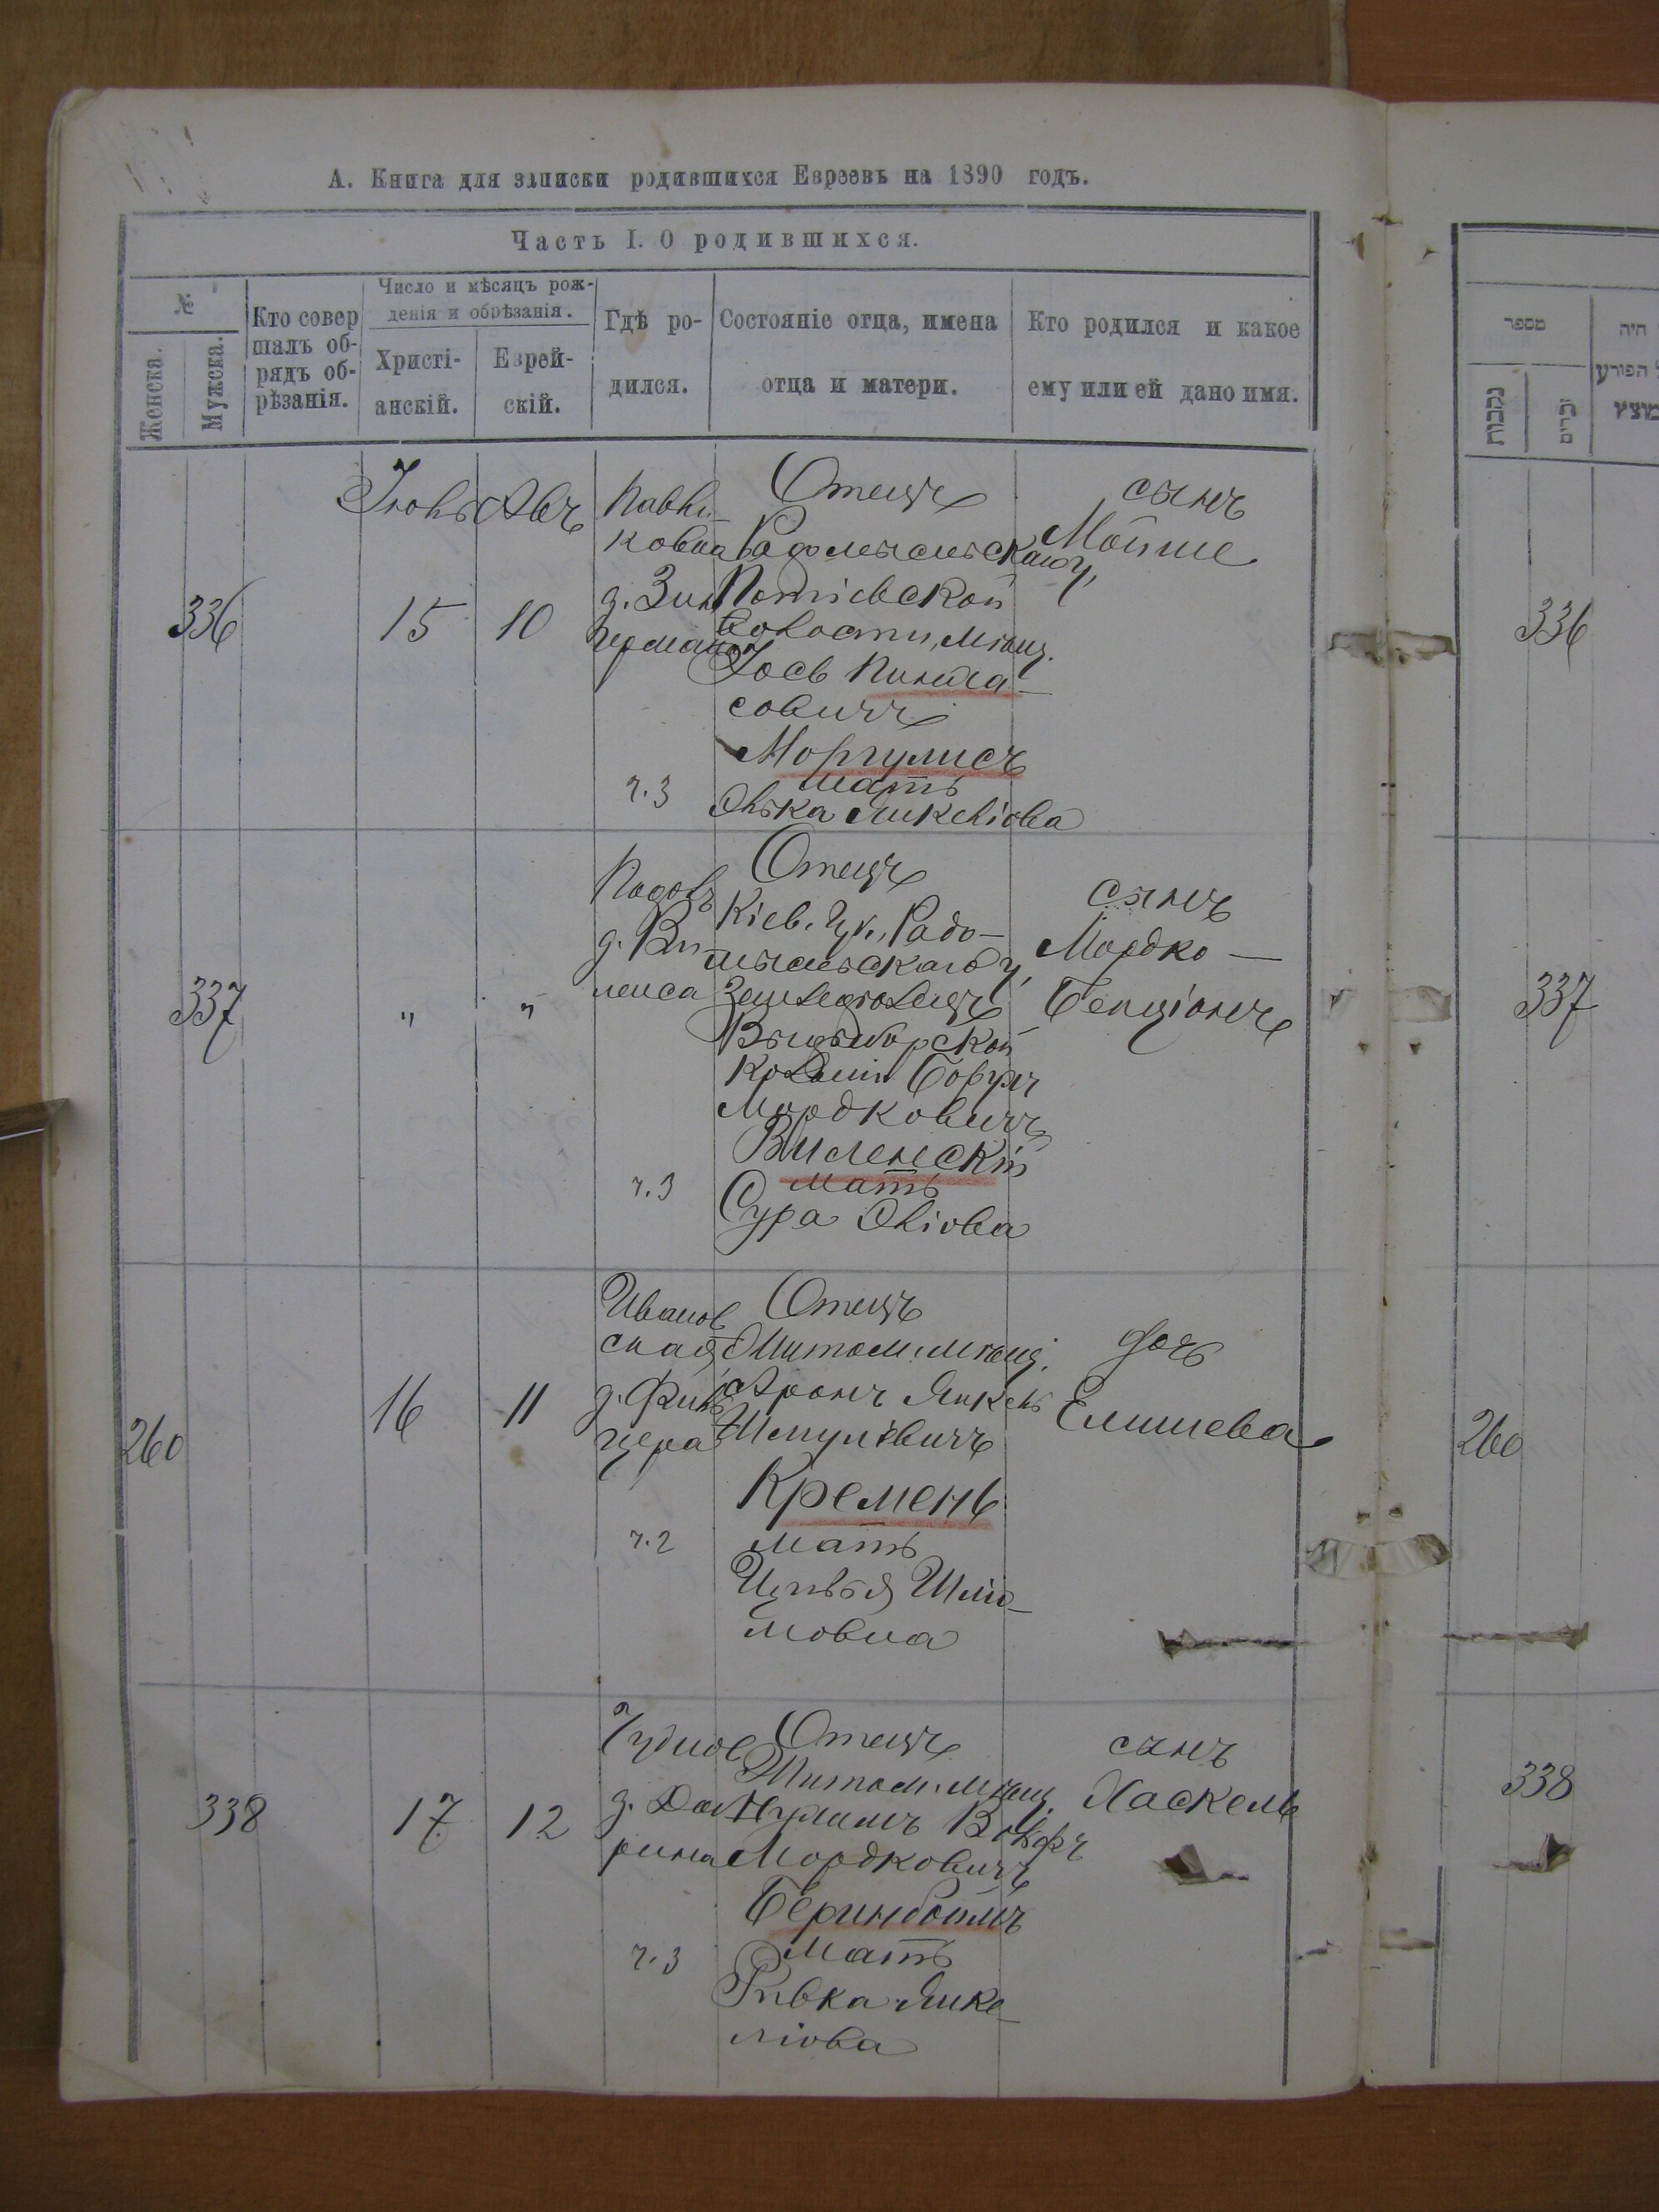 А. Книга для записки родившихся Евреевъ на 1890 годъ.
Часть I. О родившихся.
№
Женска.
Мужска.
Кто совер
шалъ об-
рядъ об-
рѣзанія.
Число и мѣсяцъ рож-
денія и обрѣзанія.
Христі-
анскій.
Еврей-
скій.
Гдѣ ро-
дился.
Состояніе отца, имена
отца и матери.
Кто родился и какое
ему или ей дано имя.
336
Іюль
15
Авъ
10
д. Зи
ч. 3
Отецъ
Радомысльскаго у,
Потіевской
волости, мѣщ.
Іось Пинха-
совичъ
Моргулисъ
мать
Элька Янкеліова
сынъ
Мойше
337
"
"
д. Ви
ленса
ч. 3
Отецъ
Кіев. губ., Радо-
мысльскаго у,
земледѣлецъ
Колоніи Борухъ
Мордковичъ
Виленскій
мать
Сура Эліова
сынъ
Мордко —
Бенціонъ
260
16
11
Иванов
ская
ч. 2
Отецъ
Житом. мѣщ.
Аронъ Янкель
Шмулѣвичъ
Кремень
мать
Ципья Шлио-
мовна
дочь
Елишева
338
17
12
Чуднов
ч. 3
Отецъ
Житом. мѣщ.
Нухимъ Вольфъ
Мордковичъ
Беринбоймъ
мать
Ривка Янке-
ліова
сынъ
Хаскель
מספר
נקבות
זכרים
336
337
260
338